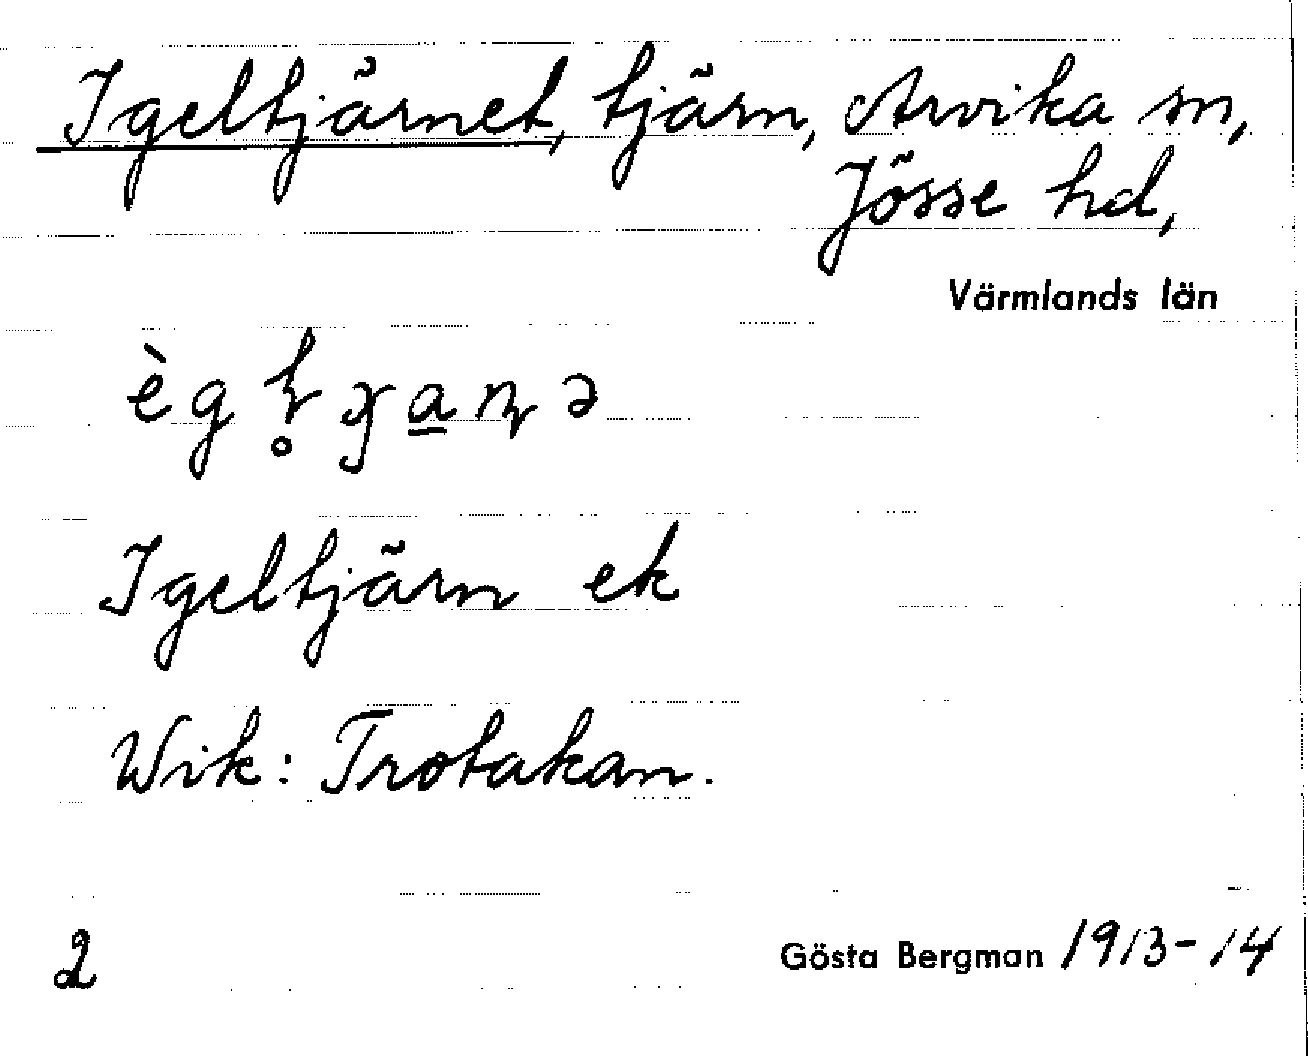 Igeltjärnet, tjärn, Arvika sn,
Jösse hd,
Värmlands län
Igeltjärn ek
Wik: Trotakan.
2
Gösta Bergman 1913-14